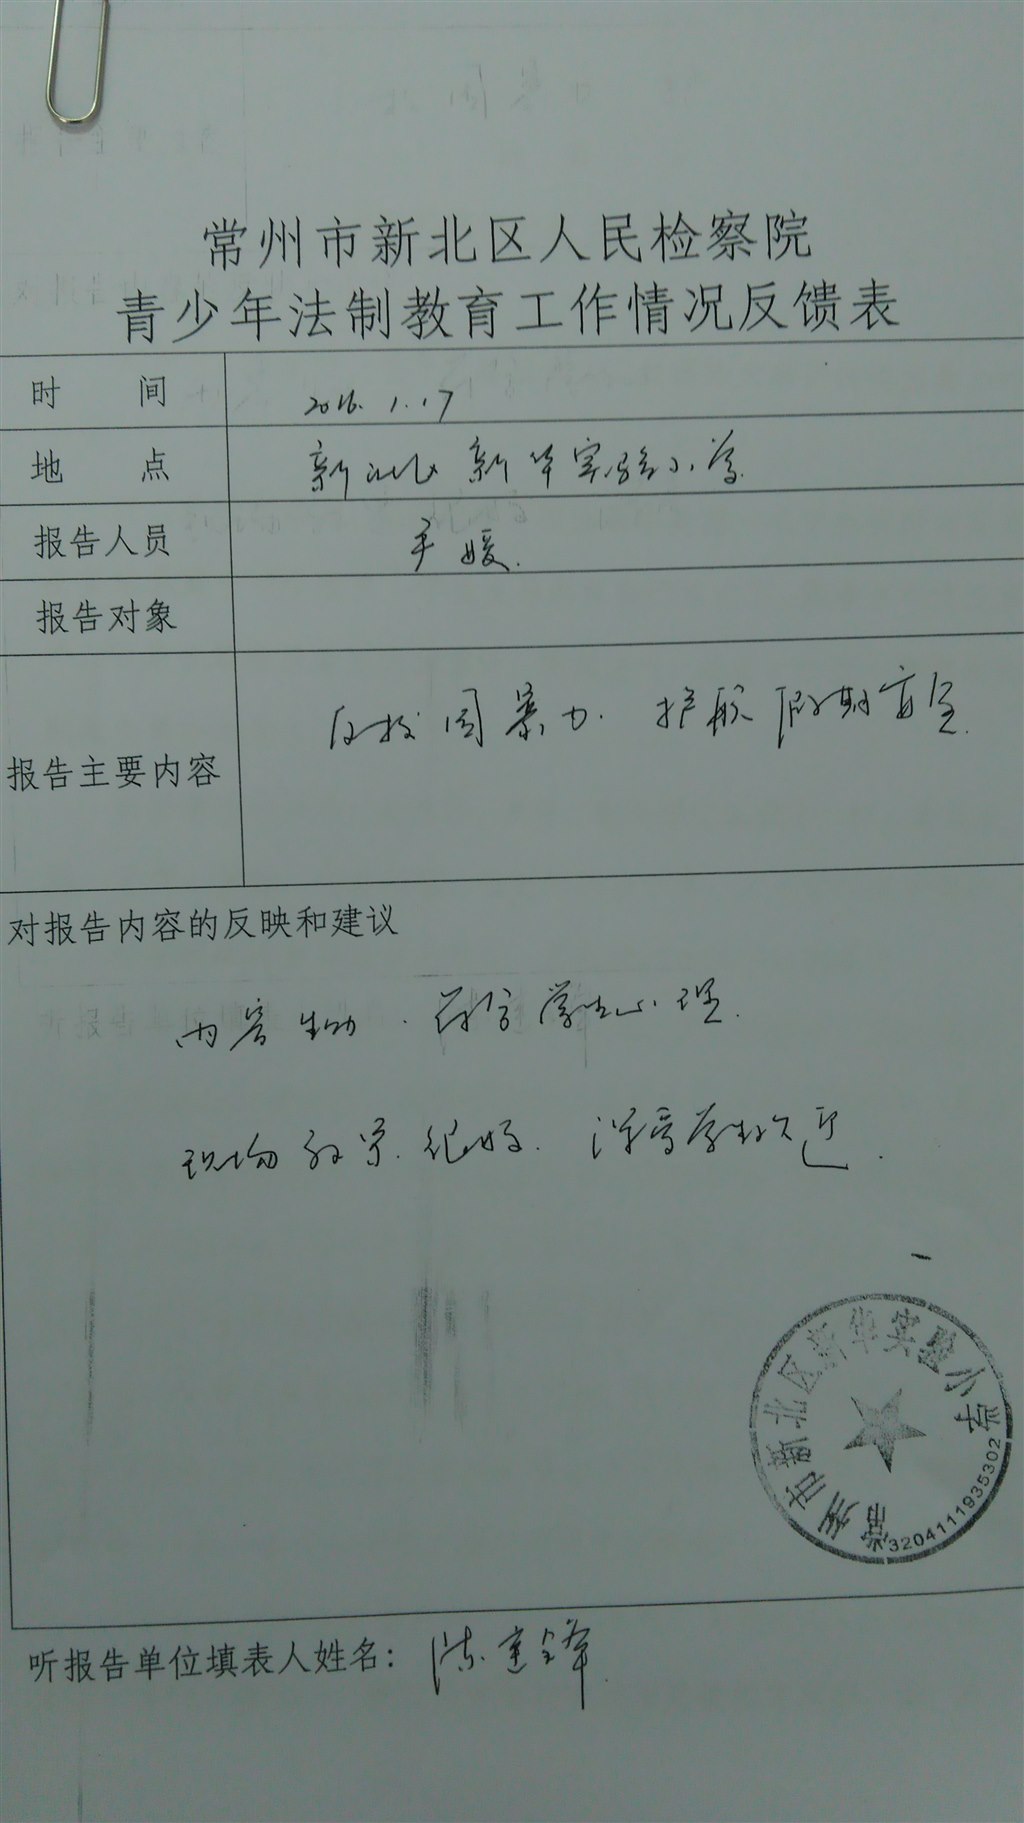 常州市新北区人民检察院
青少年法制教育工作情况反馈表
时 间 2016.1.17
地 点 新北区新华实验小学
报告人员 尹媛.
报告对象
报告主要内容 反校园暴力. 护航假期安全.
对报告内容的反映和建议
内容生动. 符合学生心理.
现场效果很好. 深受学生欢迎.
常州市新北区新华实验小学
3204111935302
听报告单位填表人姓名: 陈建锋